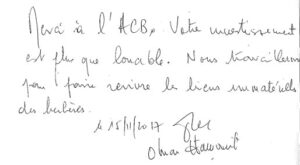 Merci à l'ACB, Votre investissement
est plus que louable. Nous travaillons
pour faire revivre les biens immatériels
des berbères.
le 15/11/2017
Omar